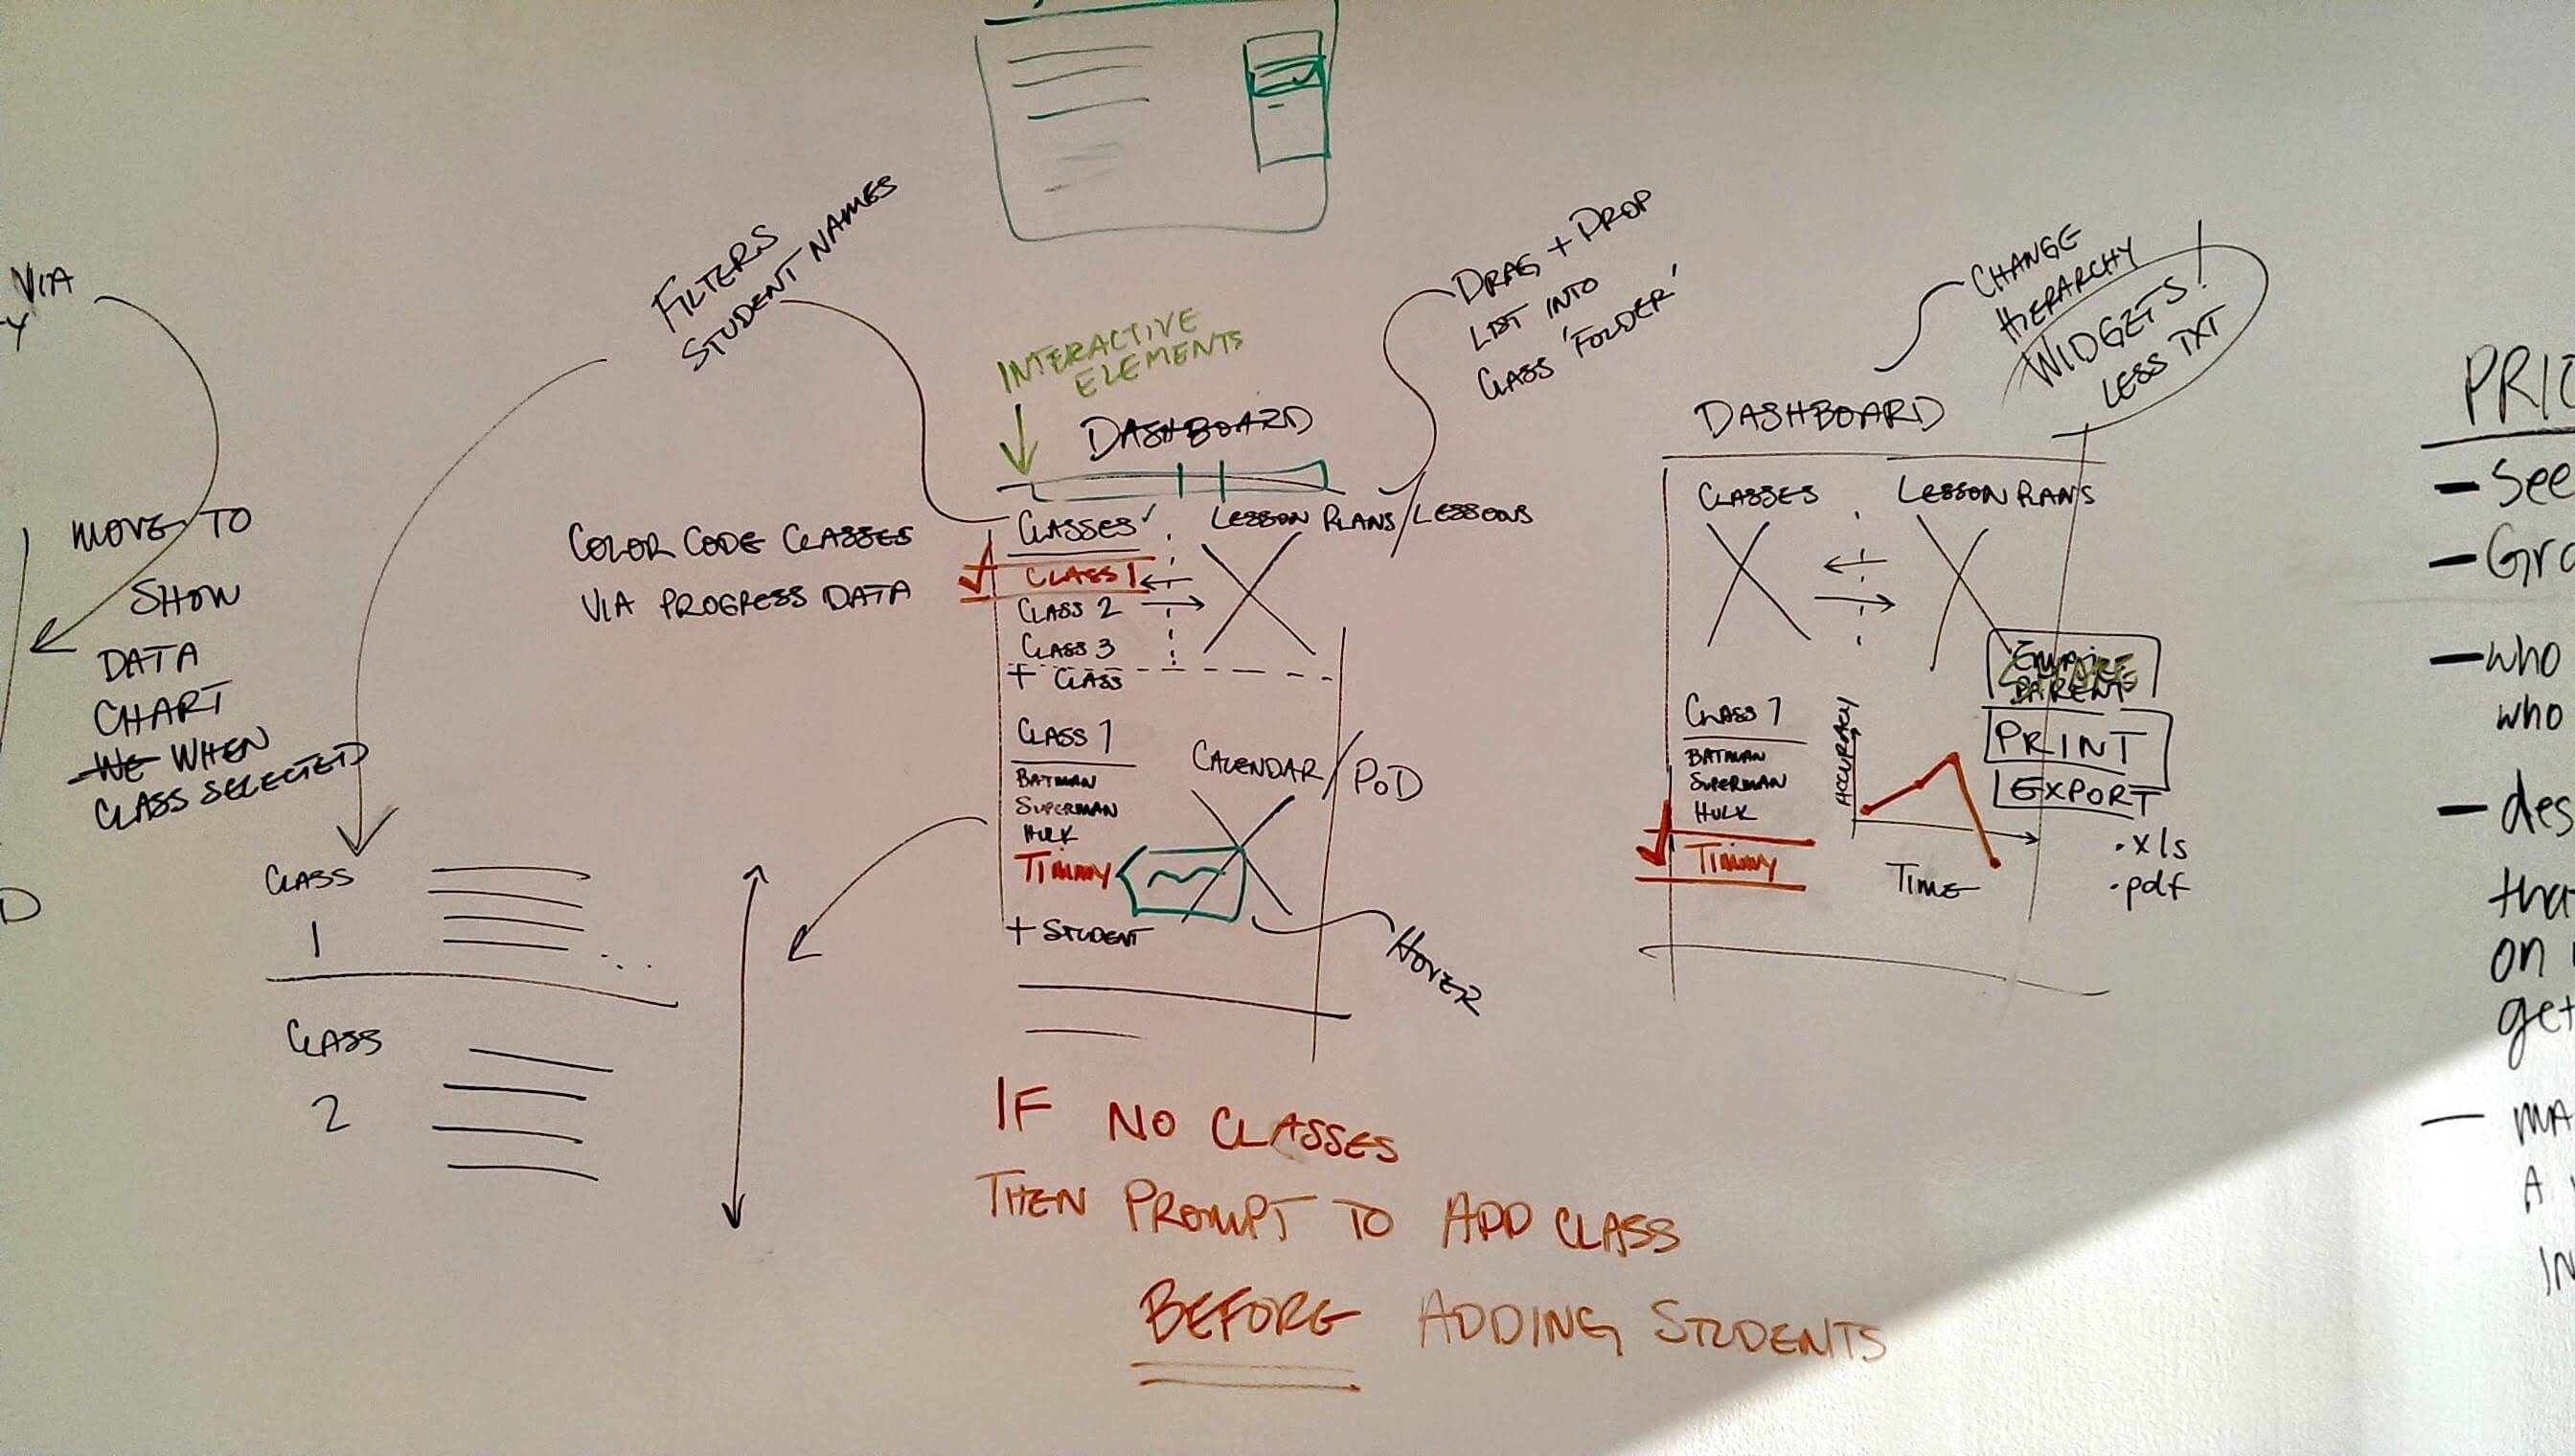 VIA
Y
MOVE TO
SHOW
DATA
CHART
WE WHEN
CLASS SELECTED
D
FILTERS
STUDENT NAMES
COLOR CODE CLASSES
VIA PROGRESS DATA
CLASS
1
CLASS
2
INTERACTIVE
ELEMENTS
DASHBOARD
CLASSES
LESSON PLANS/LESSONS
CLASS 1
CLASS 2
CLASS 3
+ CLASS
CLASS 1
BATMAN
SUPERMAN
HULK
TIMMY
+ STUDENT
CALENDAR/POD
HOVER
DRAG + DROP
LIST INTO
CLASS 'FOLDER'
IF NO CLASSES
THEN PROMPT TO ADD CLASS
BEFORE ADDING STUDENTS
CHANGE
HIERARCHY
WIDGETS!
LESS TXT
DASHBOARD
CLASSES
LESSON PLANS
CLASS 1
BATMAN
SUPERMAN
HULK
TIMMY
ACCURACY
TIME
EMAIL
PARENT
SHARE
PRINT
EXPORT
• xls
• pdf
PRIO
- See
- Gra
- who
who
- des
tha
on
get
- MA
A
IN